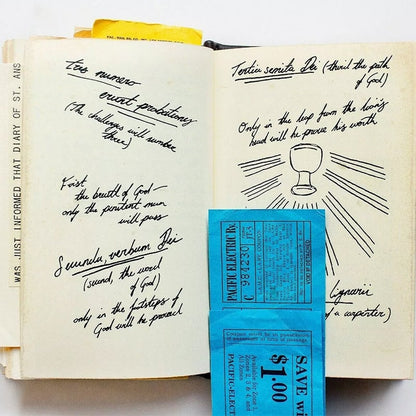 tres numero
erunt probationes
(The challenges will number
three)
First
the breath of God—
only the penitent man
will pass
Secunda verbum Dei
(second, the word
of God)
only in the footsteps of
God will he proceed
WAS JUST INFORMED THAT DIARY OF ST. ANS
Tertia semita Dei (third the path
of God)
Only in the leap from the lion's
head will he prove his worth
lignarii
of a carpenter)
PACIFIC ELECTRIC Ry.
C 984230
SAVE
$1.00
Available for Zone 1,
Zones 2, 3, 4, and
All Zones
PACIFIC ELECT